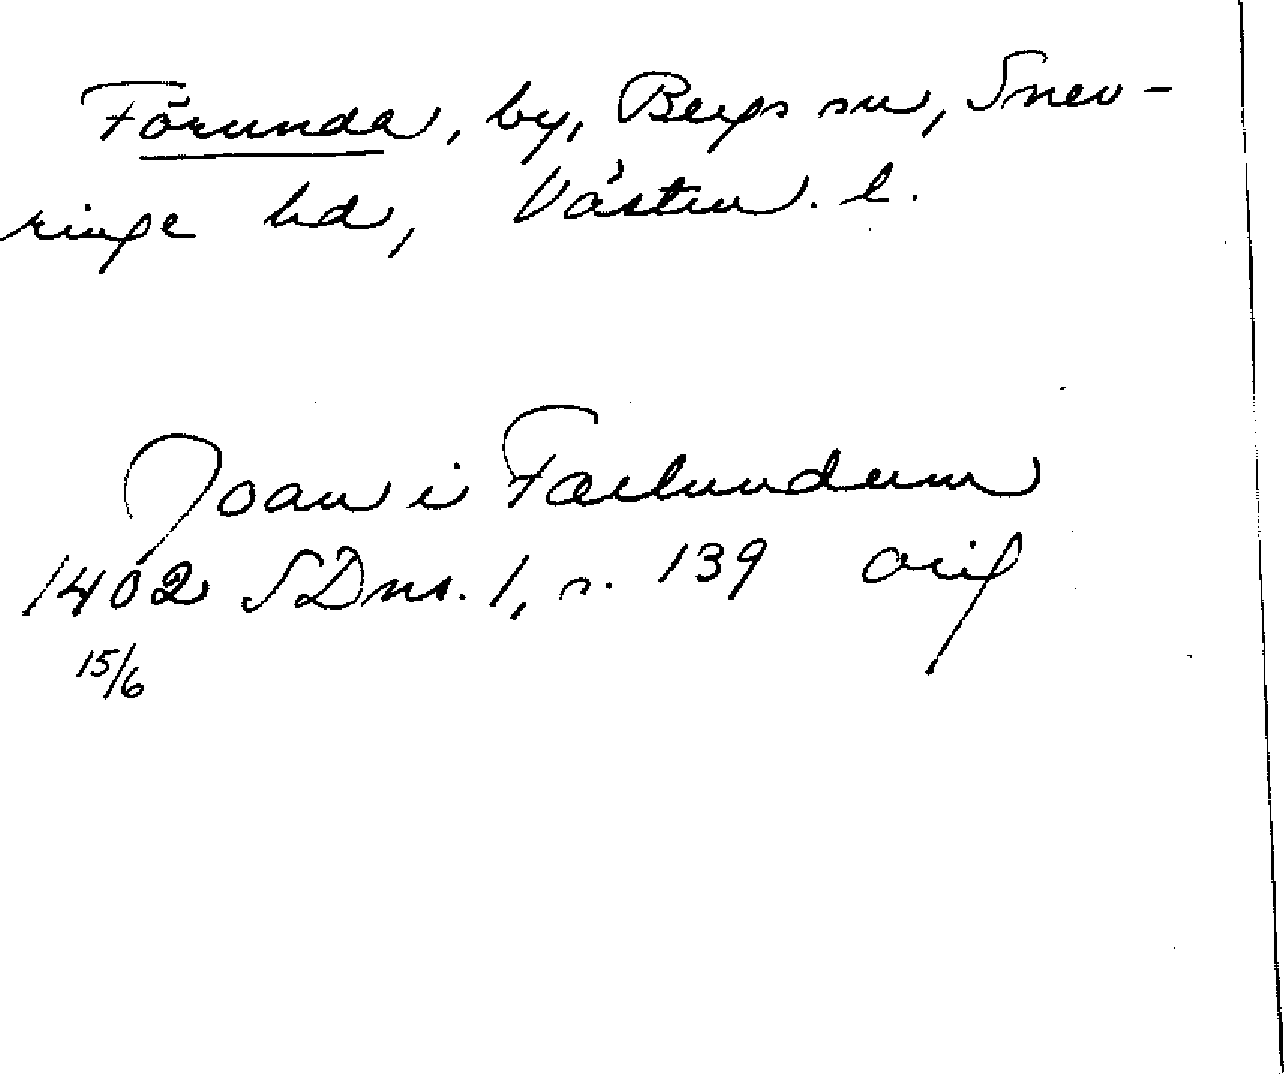 Förunda, by, Bergs sn, Snev-
ringe hd, Västm. l.
Joan i Faelundum
1402 SDns. 1, s. 139 orig
15/6